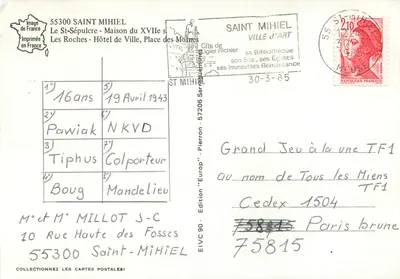 Image de France
Imprimée en France
55300 SAINT MIHIEL
Le St-Sépulcre - Maison du XVIIe s.
Les Roches - Hôtel de Ville, Place des Moines
SAINT MIHIEL
VILLE d'ART
Cité de
Ligier Richier
sa Bibliothèque
son Site, ses Eglises
ses Immeubles Renaissance
ST MIHIEL
30-3-85
55 ST MIHIEL
2,10
1/ 16 ans
2/ Pawiak
3/ Tiphus
4/ Boug
5/ 19 Avril 1943
6/ NKVD
7/ Colporteur
8/ Mandelieu
Mr et Me MILLOT J-C
10 Rue Haute des Fosses
55300 Saint-MiHiEL
COLLECTIONNEZ LES CARTES POSTALES
EIVC 90 - Edition "Europ" - Pierron - 57206 Sarreguemines
Grand Jeu à la une TF1
au nom de Tous les Miens
TF1
Cedex 1504
75815 Paris brune
75815